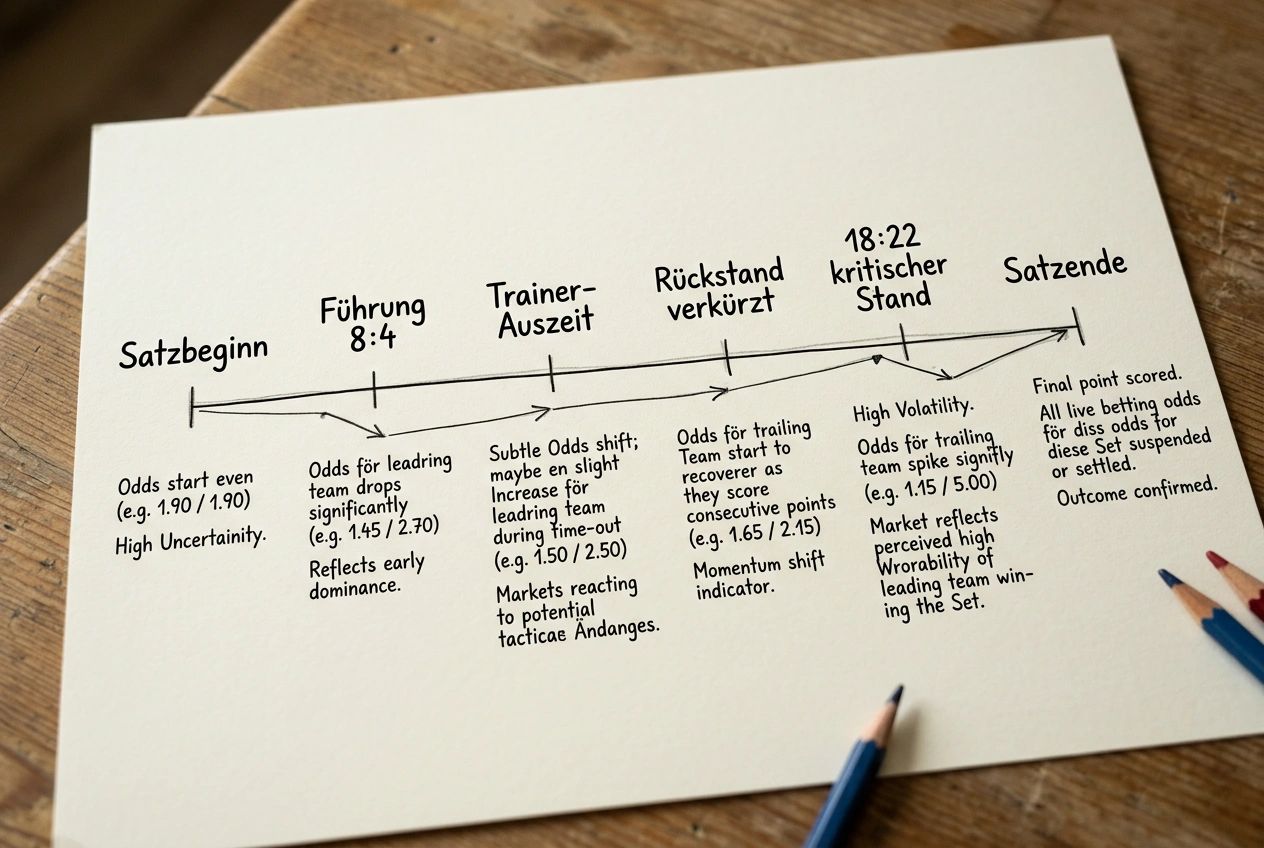 Satzbeginn
Odds start even
(e.g. 1.90 / 1.90)
High Uncertainity.
Führung
8:4
Odds för leadring
team drops
significantly
(e.g. 1.45 / 2.70)
Reflects early
dominance.
Trainer-
Auszeit
Subtle Odds shift;
maybe en slight
Increase för
leadring team
during time-out
(e.g. 1.50 / 2.50)
Markets reacting
to potential
tacticae Ändanges.
Rückstand
verkürzt
Odds för trailing
Team start to
recoverer as
they score
consecutive points
(e.g. 1.65 / 2.15)
Momentum shift
indicator.
18:22
kritischer
Stand
High Volatility.
Odds för trailing
team spike signifly
(e.g. 1.15 / 5.00)
Market reflects
perceived high
Wrorability of
leading team win-
ing the Set.
Satzende
Final point scored.
All live betting odds
för diss odds for
diese Set suspended
or settled.
Outcome confirmed.